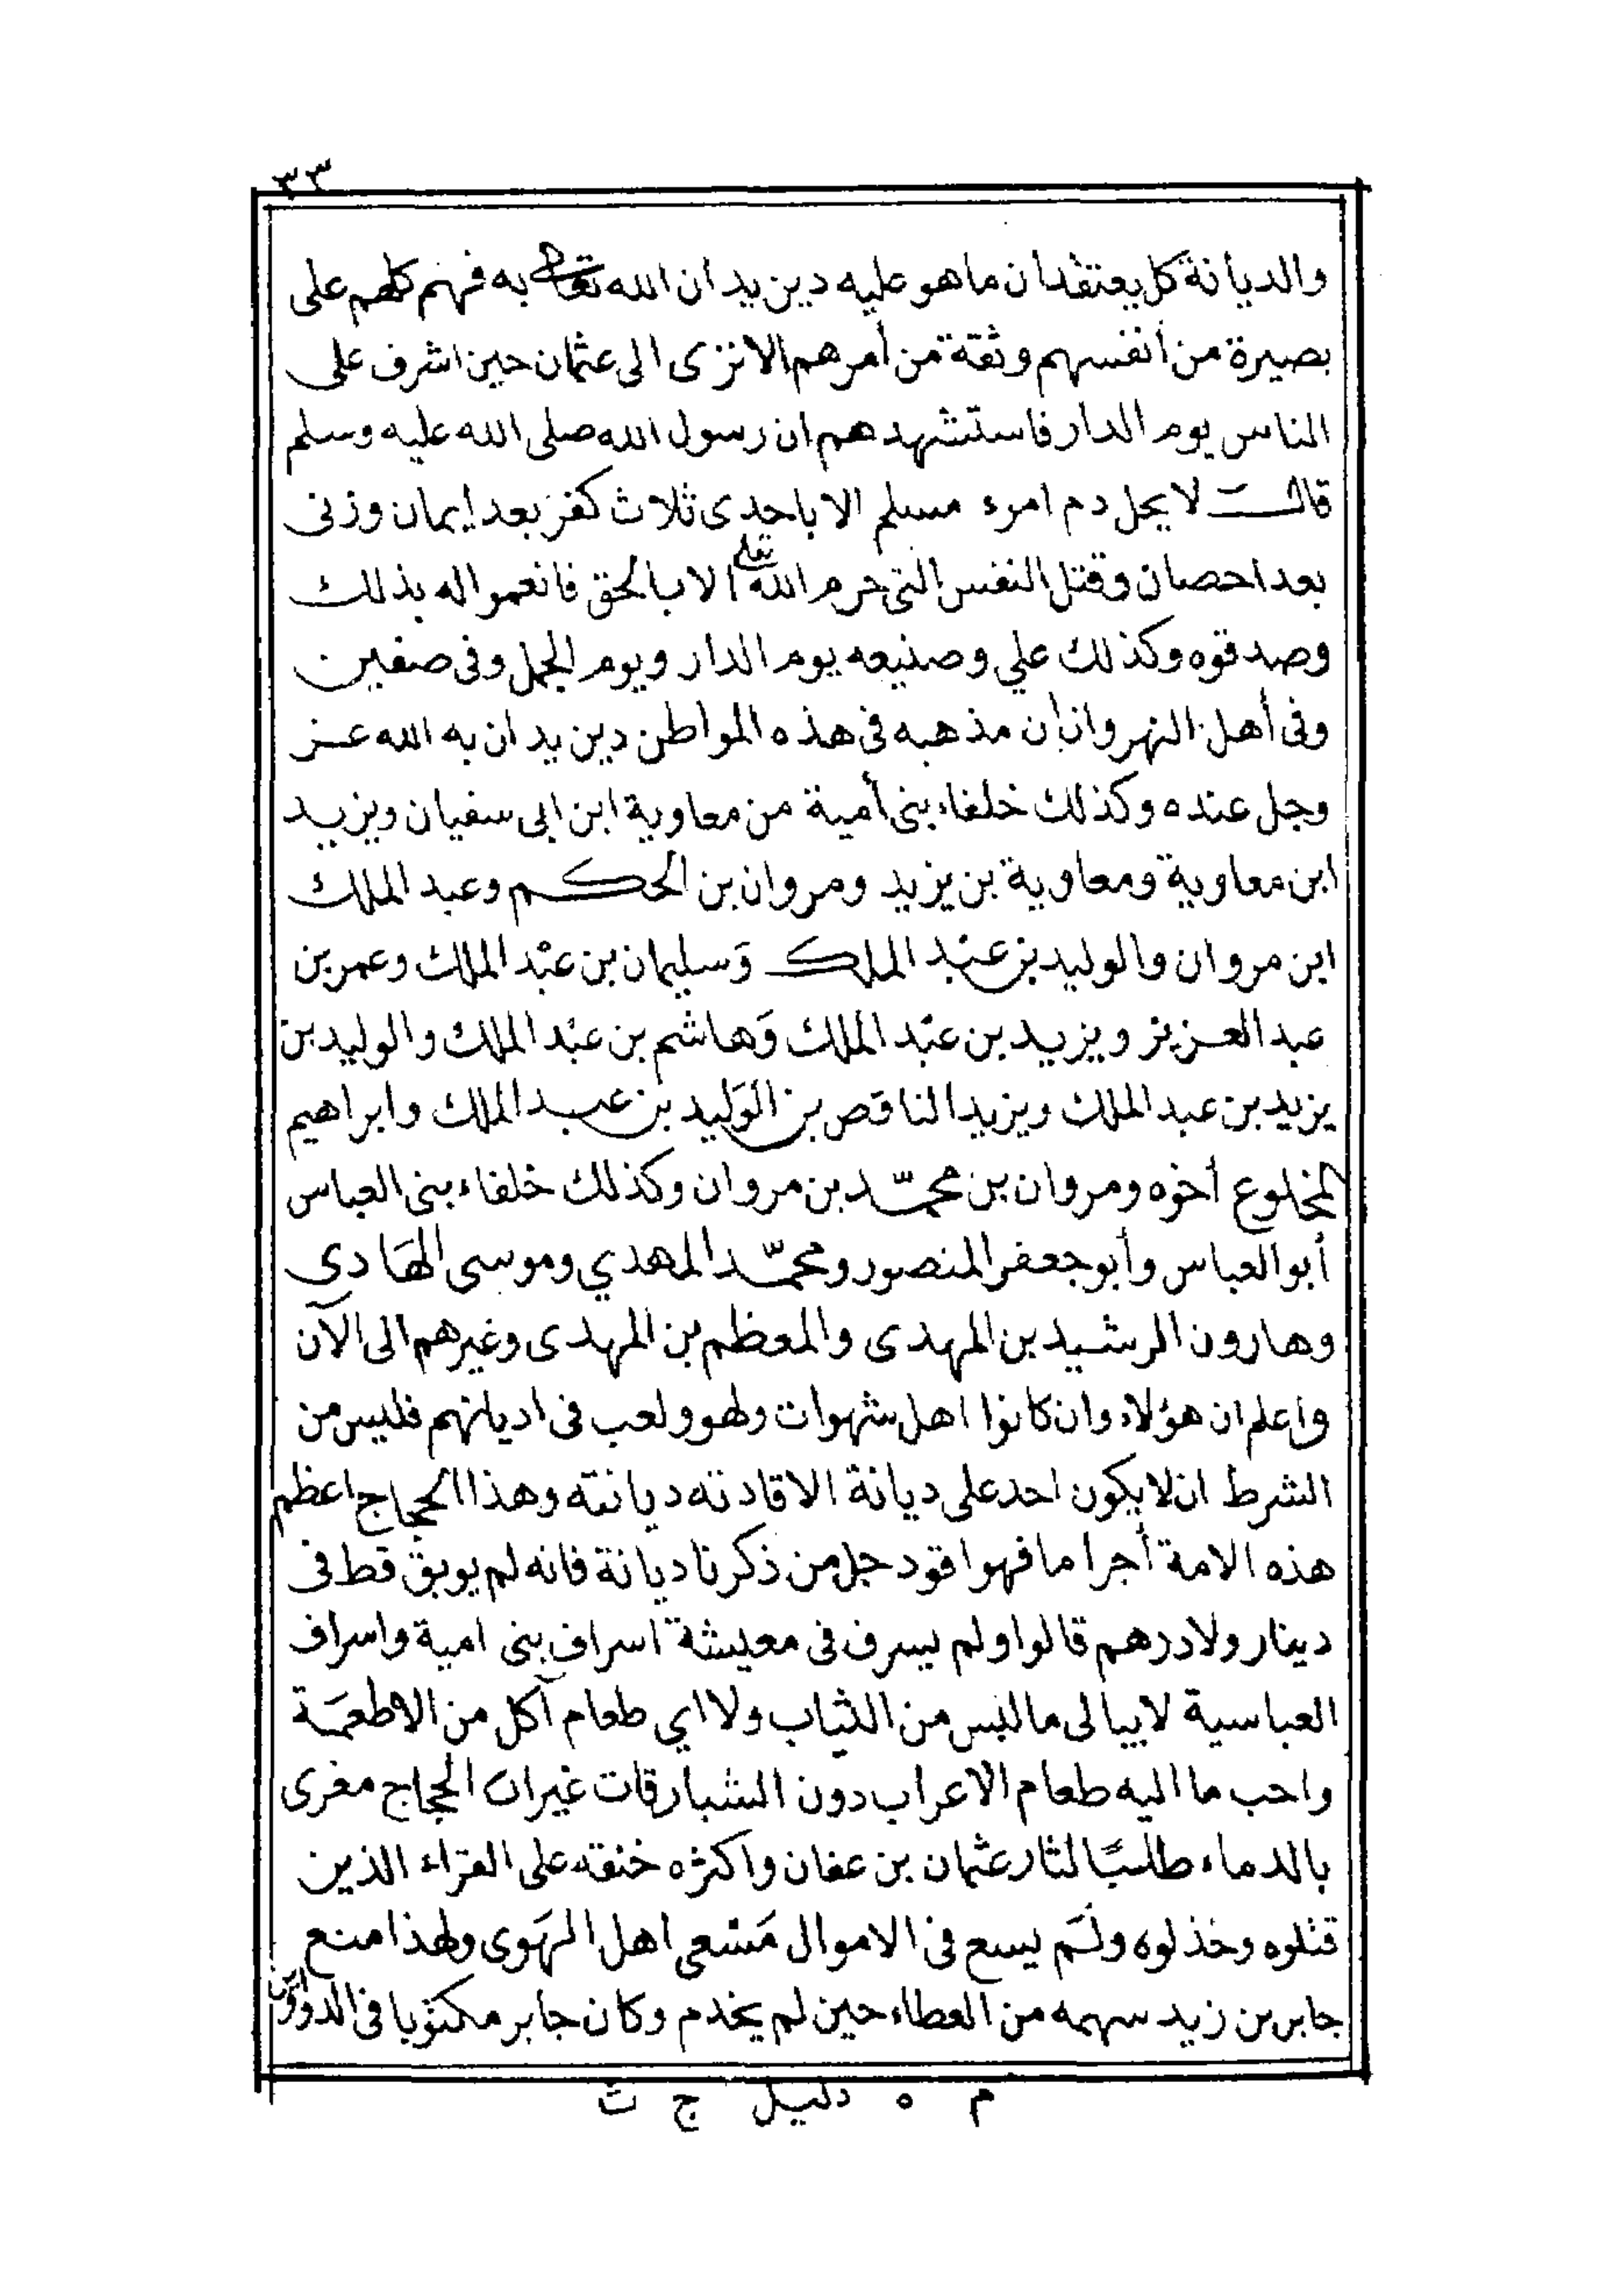 ٣٣
والديانة كل يعتقد ان ما هو عليه دين يدان الله تعالى به فهم كلهم على
بصيرة من أنفسهم وثقة من أمرهم الا ترى الى عثمان حين اشرف على
الناس يوم الدار فاستشهدهم ان رسول الله صلى الله عليه وسلم
قال لا يحل دم امرء مسلم الا باحدى ثلاث كفر بعد إيمان وزنى
بعد احصان وقتل النفس التى حرم الله تعلى الا بالحق فانعموا له بذلك
وصدقوه وكذلك علي وصنيعه يوم الدار ويوم الجمل وفى صفين
وفى أهل النهروان ان مذهبه فى هذه المواطن دين يدان به الله عز
وجل عنده وكذلك خلفاء بنى أمية من معاوية ابن ابى سفيان ويزيد
ابن معاوية ومعاوية بن يزيد ومروان بن الحكم وعبد الملك
ابن مروان والوليد بن عبد الملك وَسليمان بن عبْد الملك وعمر بن
عبد العزيز ويزيد بن عبْد الملك وَهاشم بن عبْد الملك والوليد بن
يزيد بن عبد الملك ويزيد الناقص بن الوَليد بن عبد الملك وابراهيم
المخلوع أخوه ومروان بن محمّد بن مروان وكذلك خلفاء بنى العباس
أبو العباس وأبو جعفر المنصور ومحمّد المهدي وموسى الهَادي
وهارون الرشيد بن المهدى والمعظم بن المهدى وغيرهم الى الآن
واعلم ان هؤلاء وان كانوا اهل شهوات ولهو ولعب فى اديانهم فليس من
الشرط ان لا يكون احد على ديانة الا قادته ديانته وهذا الحجاج اعظم
هذه الامة أجراما فهو اقود جل من ذكرنا ديانة فانه لم يوبق قط فى
دينار ولا درهم قالوا ولم يسرف فى معيشة اسراف بنى امية واسراف
العباسية لا يبالى ما لبس من الثياب ولا اي طعام آكل من الاطعمَة
واحب ما اليه طعام الاعراب دون الشبارقات غير ان الحجاج مغرى
بالدماء طلبًا لثار عثمان بن عفان واكثره خنقه على القرّاء الذين
قتلوه وخذلوه ولَم يسع فى الاموال مَسْعى اهل الهَوى ولهذا منع
جابر بن زيد سهمه من العطاء حين لم يخدم وكان جابر مكتوبا فى الدواوين
م ٥ دليل ج ث